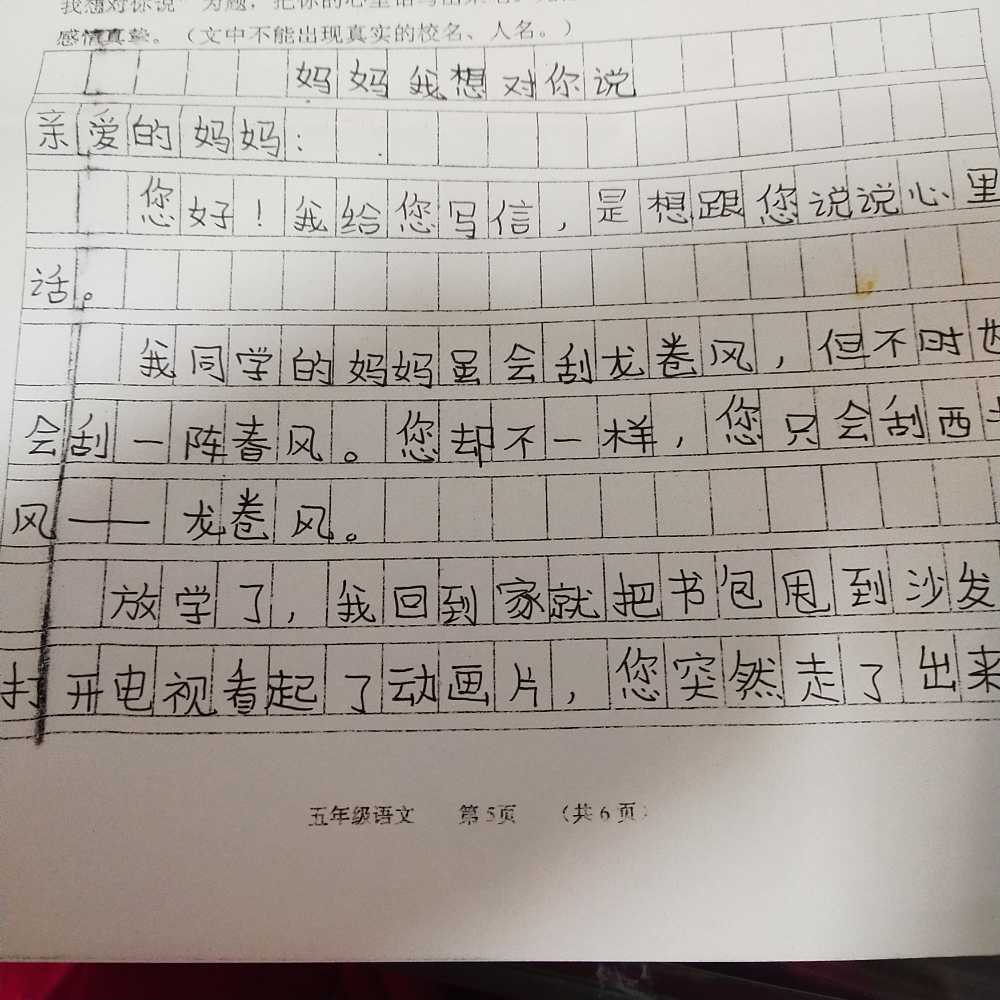 我想对你说"为题，把你的心里话写出来吧。
感情真挚。（文中不能出现真实的校名、人名。）
妈妈我想对你说
亲爱的妈妈：
您好！我给您写信，是想跟您说说心里
话。
我同学的妈妈虽会刮龙卷风，但不时也
会刮一阵春风。您却不一样，您只会刮西
风——龙卷风。
放学了，我回到家就把书包甩到沙发
打开电视看起了动画片，您突然走了出来
五年级语文 第5页 （共6页）